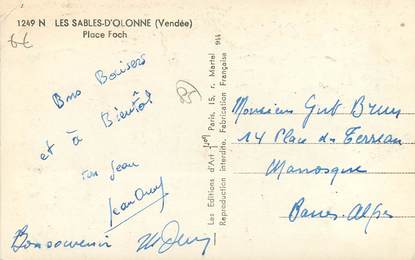 1249 N LES SABLES-D'OLONNE (Vendée)
Place Foch
6€
Bons Baisers
et à Bientôt
Jean
Bon souvenir
Les Editions d'Art Paris, 15, r. Martel 914
Reproduction interdite. Fabrication Française
Monsieur Gut Brun
14 Place du Terreau
Manosque
Basses-Alpes